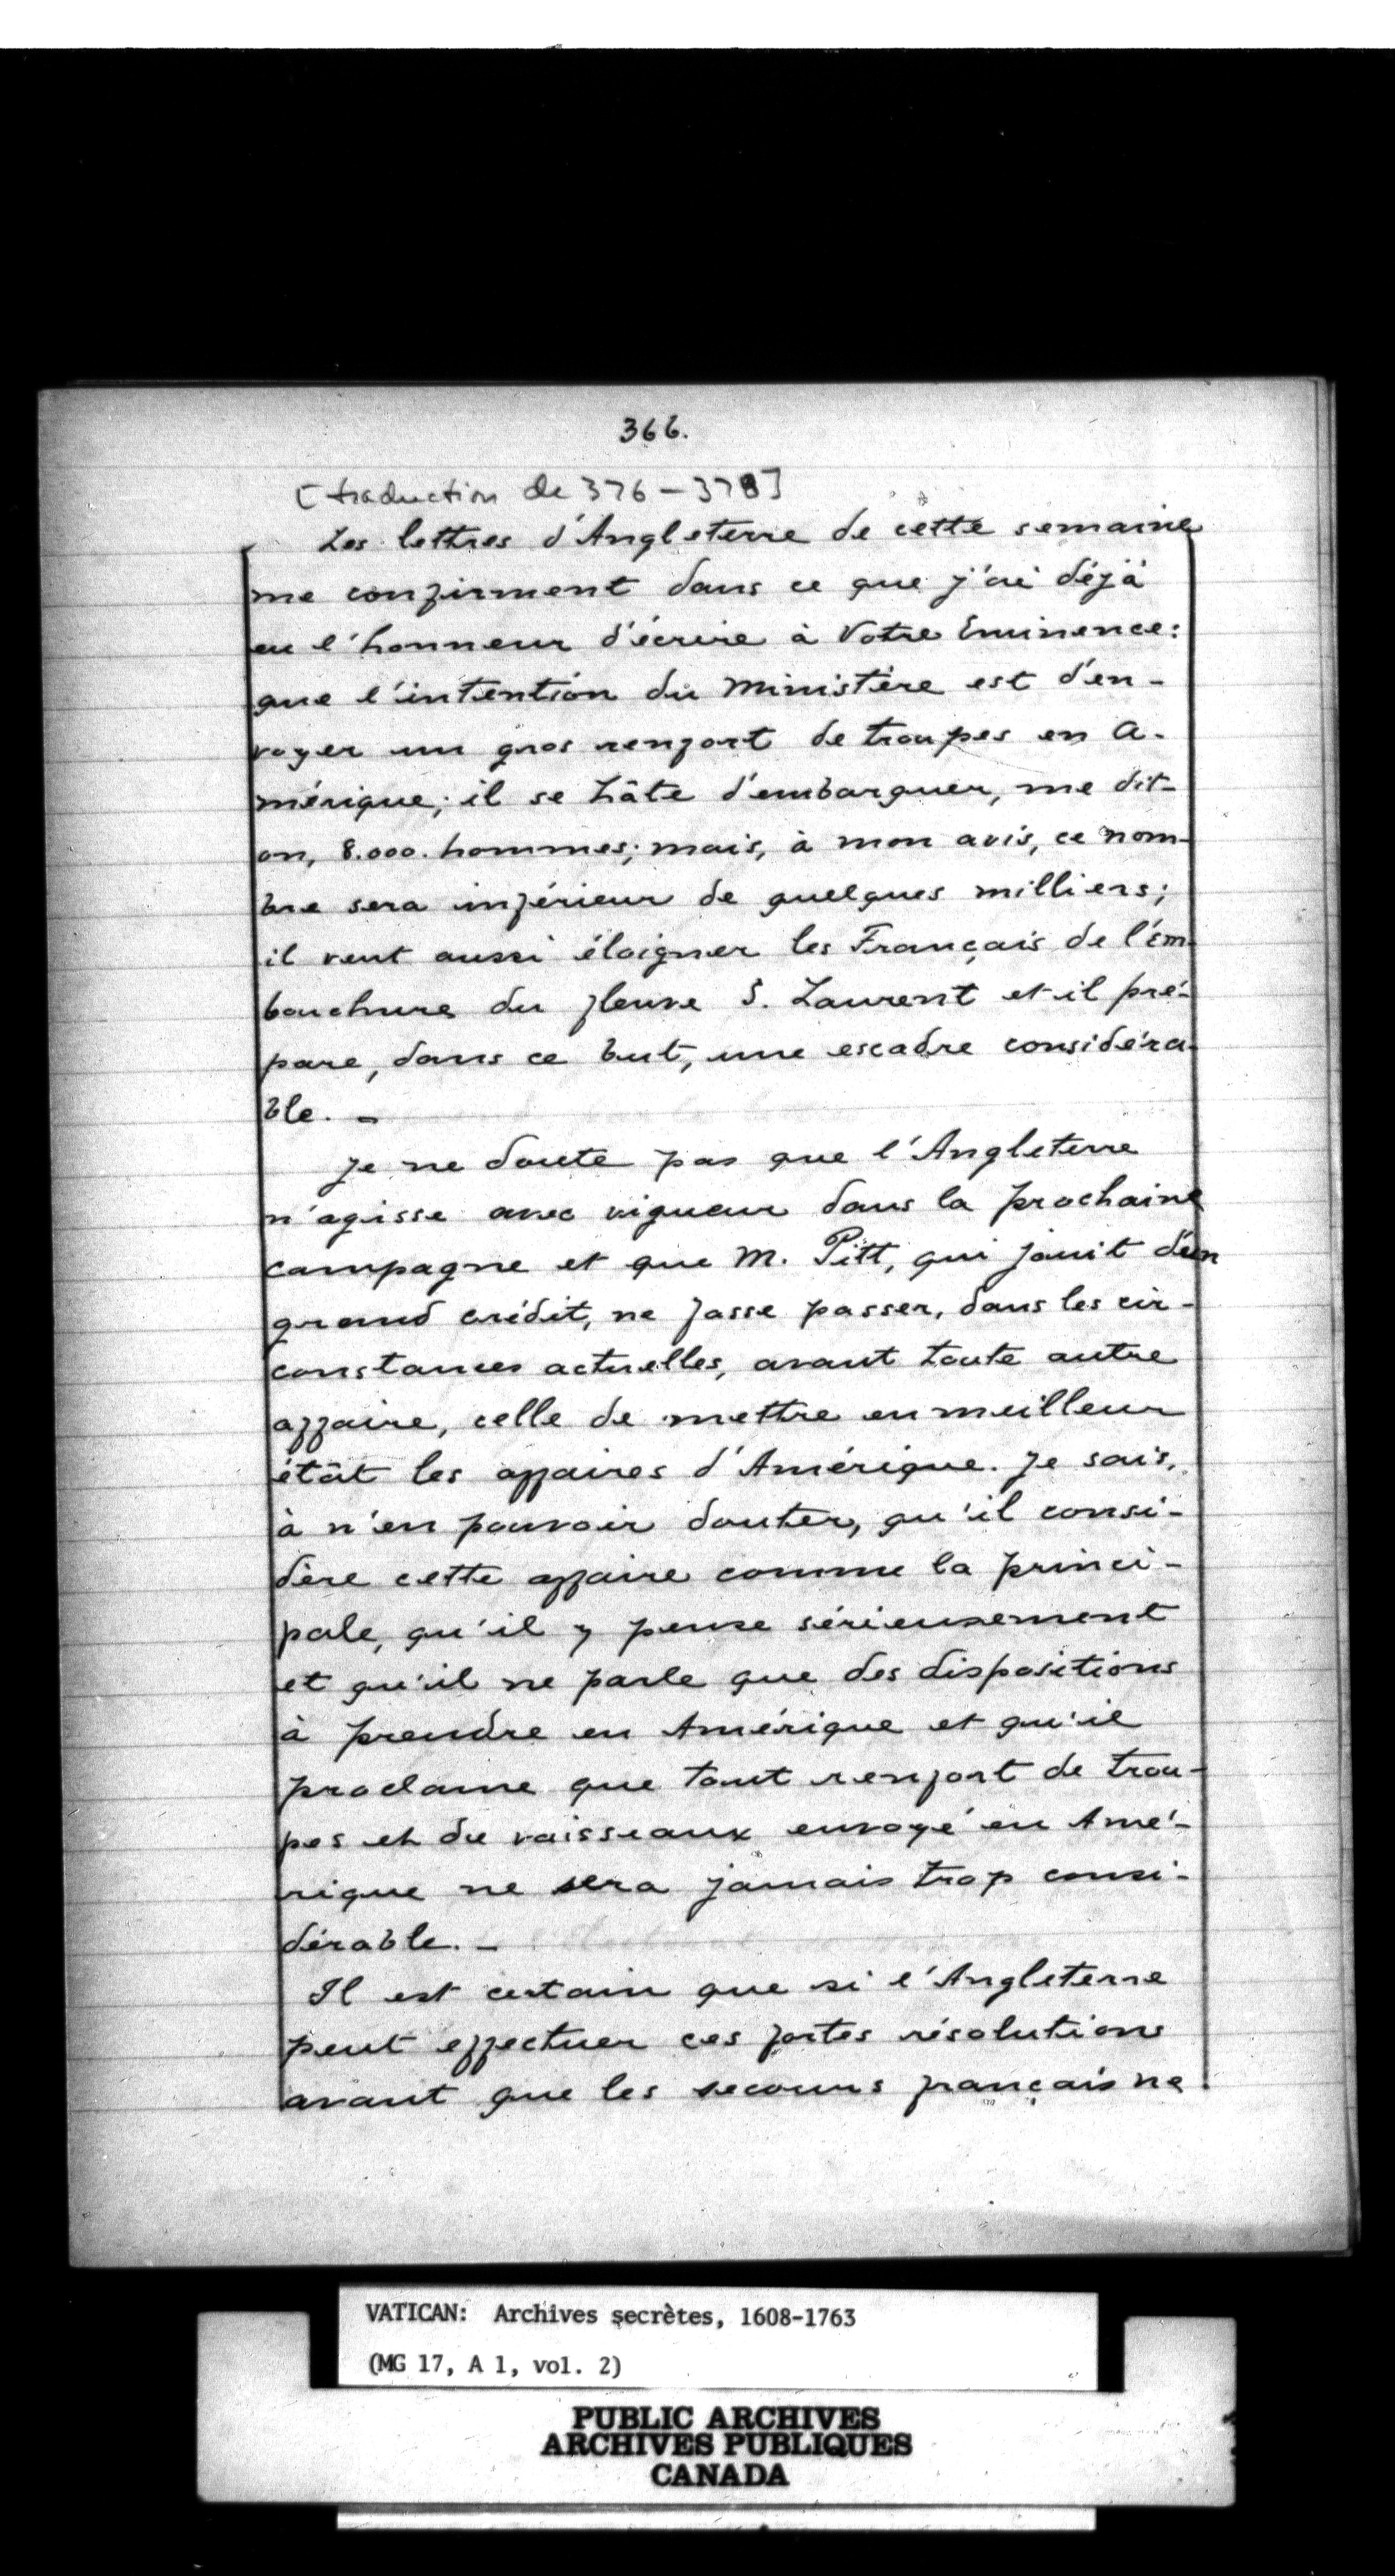 366.
[traduction de 376-378]
Les lettres d'Angleterre de cette semaine
me confirment dans ce que j'ai déjà
eu l'honneur d'écrire à Votre Eminence:
que l'intention du Ministère est d'en-
voyer un gros renfort de troupes en A-
mérique; il se hâte d'embarquer, me dit-
on, 8.000. hommes; mais, à mon avis, ce nom-
bre sera inférieur de quelques milliers;
il veut aussi éloigner les Français de l'em-
bouchure du fleuve S. Laurent et il pré-
pare, dans ce but, une escadre considéra-
ble. -
Je ne doute pas que l'Angleterre
n'agisse avec vigueur dans la prochaine
campagne et que M. Pitt, qui jouit d'un
grand crédit, ne fasse passer, dans les cir-
constances actuelles, avant toute autre
affaire, celle de mettre en meilleur
étât les affaires d'Amérique. Je sais,
à n'en pouvoir douter, qu'il consi-
dère cette affaire comme la princi-
pale, qu'il y pense sérieusement
et qu'il ne parle que des dispositions
à prendre en Amérique et qu'il
proclame que tout renfort de trou-
pes et de vaisseaux envoyé en Amé-
rique ne sera jamais trop consi-
dérable. -
Il est certain que si l'Angleterre
peut effectuer ces fortes résolutions
avant que les secours français ne
VATICAN: Archives secrètes, 1608-1763
(MG 17, A 1, vol. 2)
PUBLIC ARCHIVES
ARCHIVES PUBLIQUES
CANADA